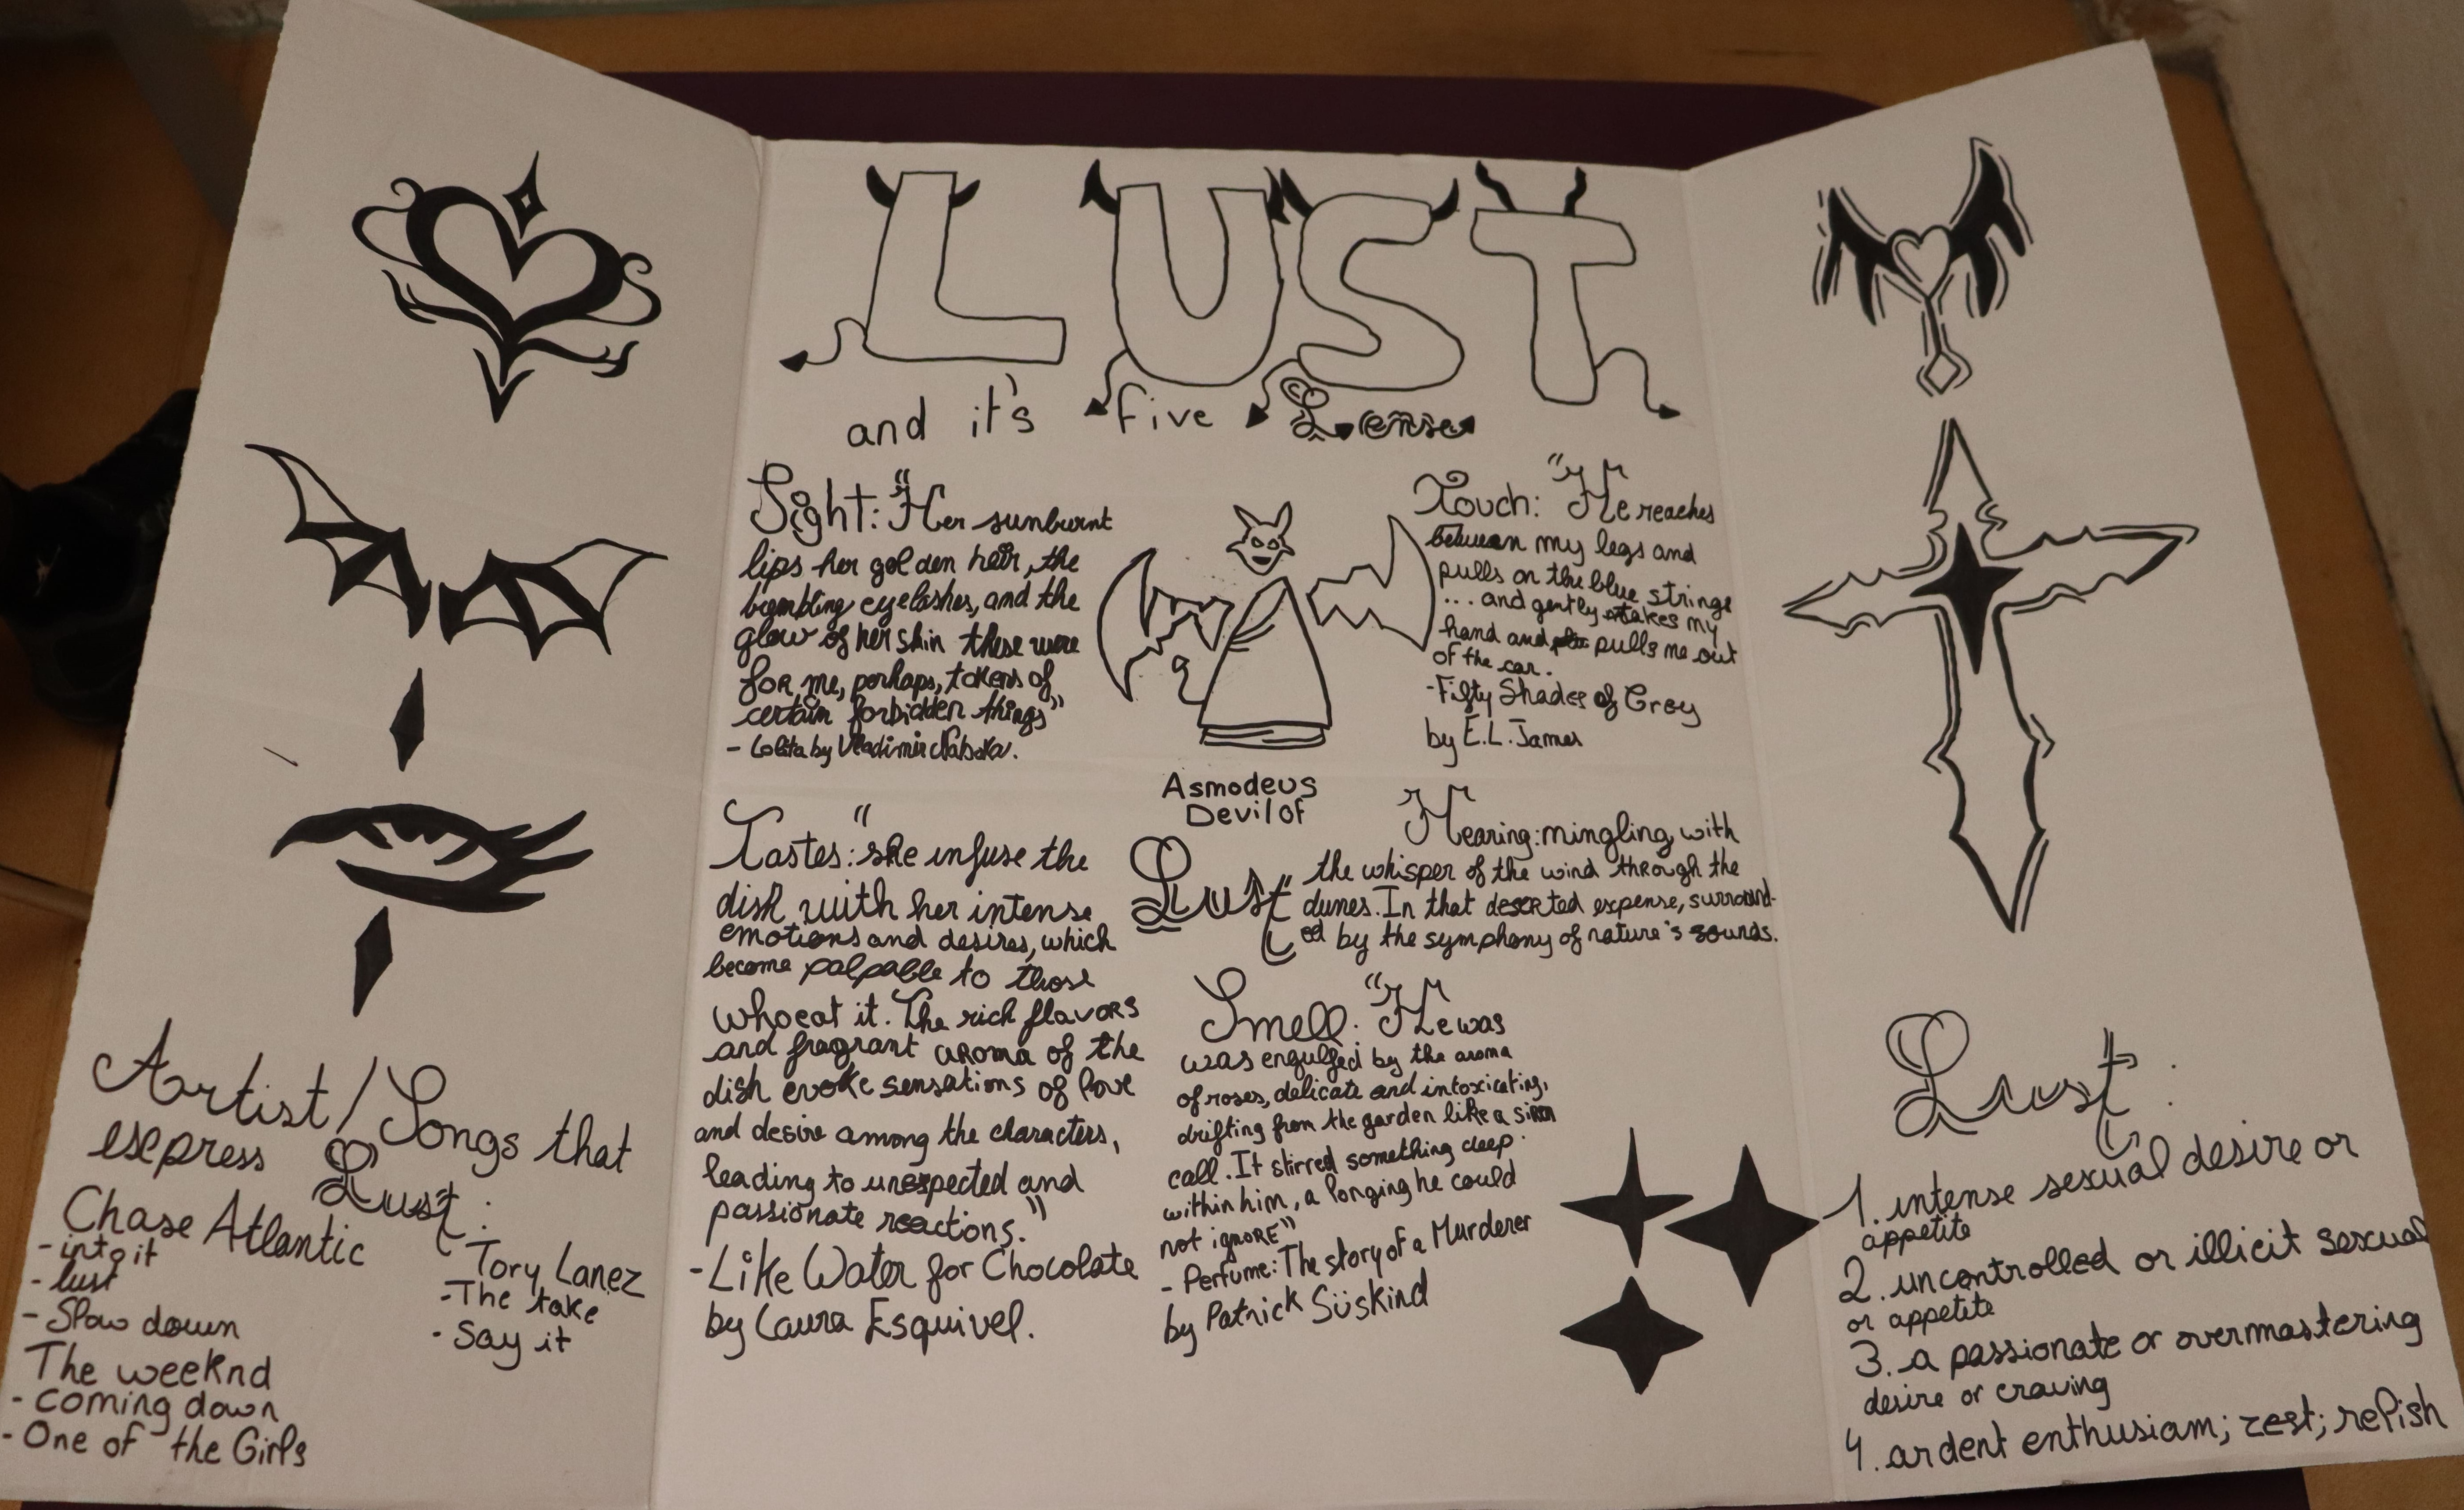 Artist/Songs that
express Lust:
Chase Atlantic
- into it
- lust
- Slow down
The weeknd
- coming down
- One of the Girls
Tory Lanez
- The take
- Say it
LUST
and it's five
Sight: "Her sunburnt
lips her golden hair, the
eyelashes, and the
glow of her skin these were
for me, perhaps, tokens of
certain forbidden things"
- Lolita by Vladimir
Tastes: "she infuse the
dish with her intense
emotions and desires, which
become palpable to those
who eat it. The rich flavors
and fragrant aroma of the
dish evoke sensations of love
and desire among the characters,
leading to unexpected and
passionate reactions."
- Like Water for Chocolate
by Laura Esquivel.
Asmodeus
Devil of
Lust
Touch: "He reaches
between my legs and
pulls on the blue strings
... and gently takes my
hand and pulls me out
of the car.
- Fifty Shades of Grey
by E.L. James
Hearing: mingling with
"the whisper of the wind through the
dunes. In that deserted expense, surround-
ed by the symphony of nature's sounds.
Smell: "He was
was engulfed by the aroma
of roses, delicate and intoxicating,
drifting from the garden like a siren
call. It stirred something deep
within him, a longing he could
not ignore"
- Perfume: The story of a Murderer
by Patrick Süskind
Lust:
1. intense sexual desire or
appetite
2. uncontrolled or illicit sexual
or appetite
3. a passionate or overmastering
desire or craving
4. ardent enthusiam; zest; relish